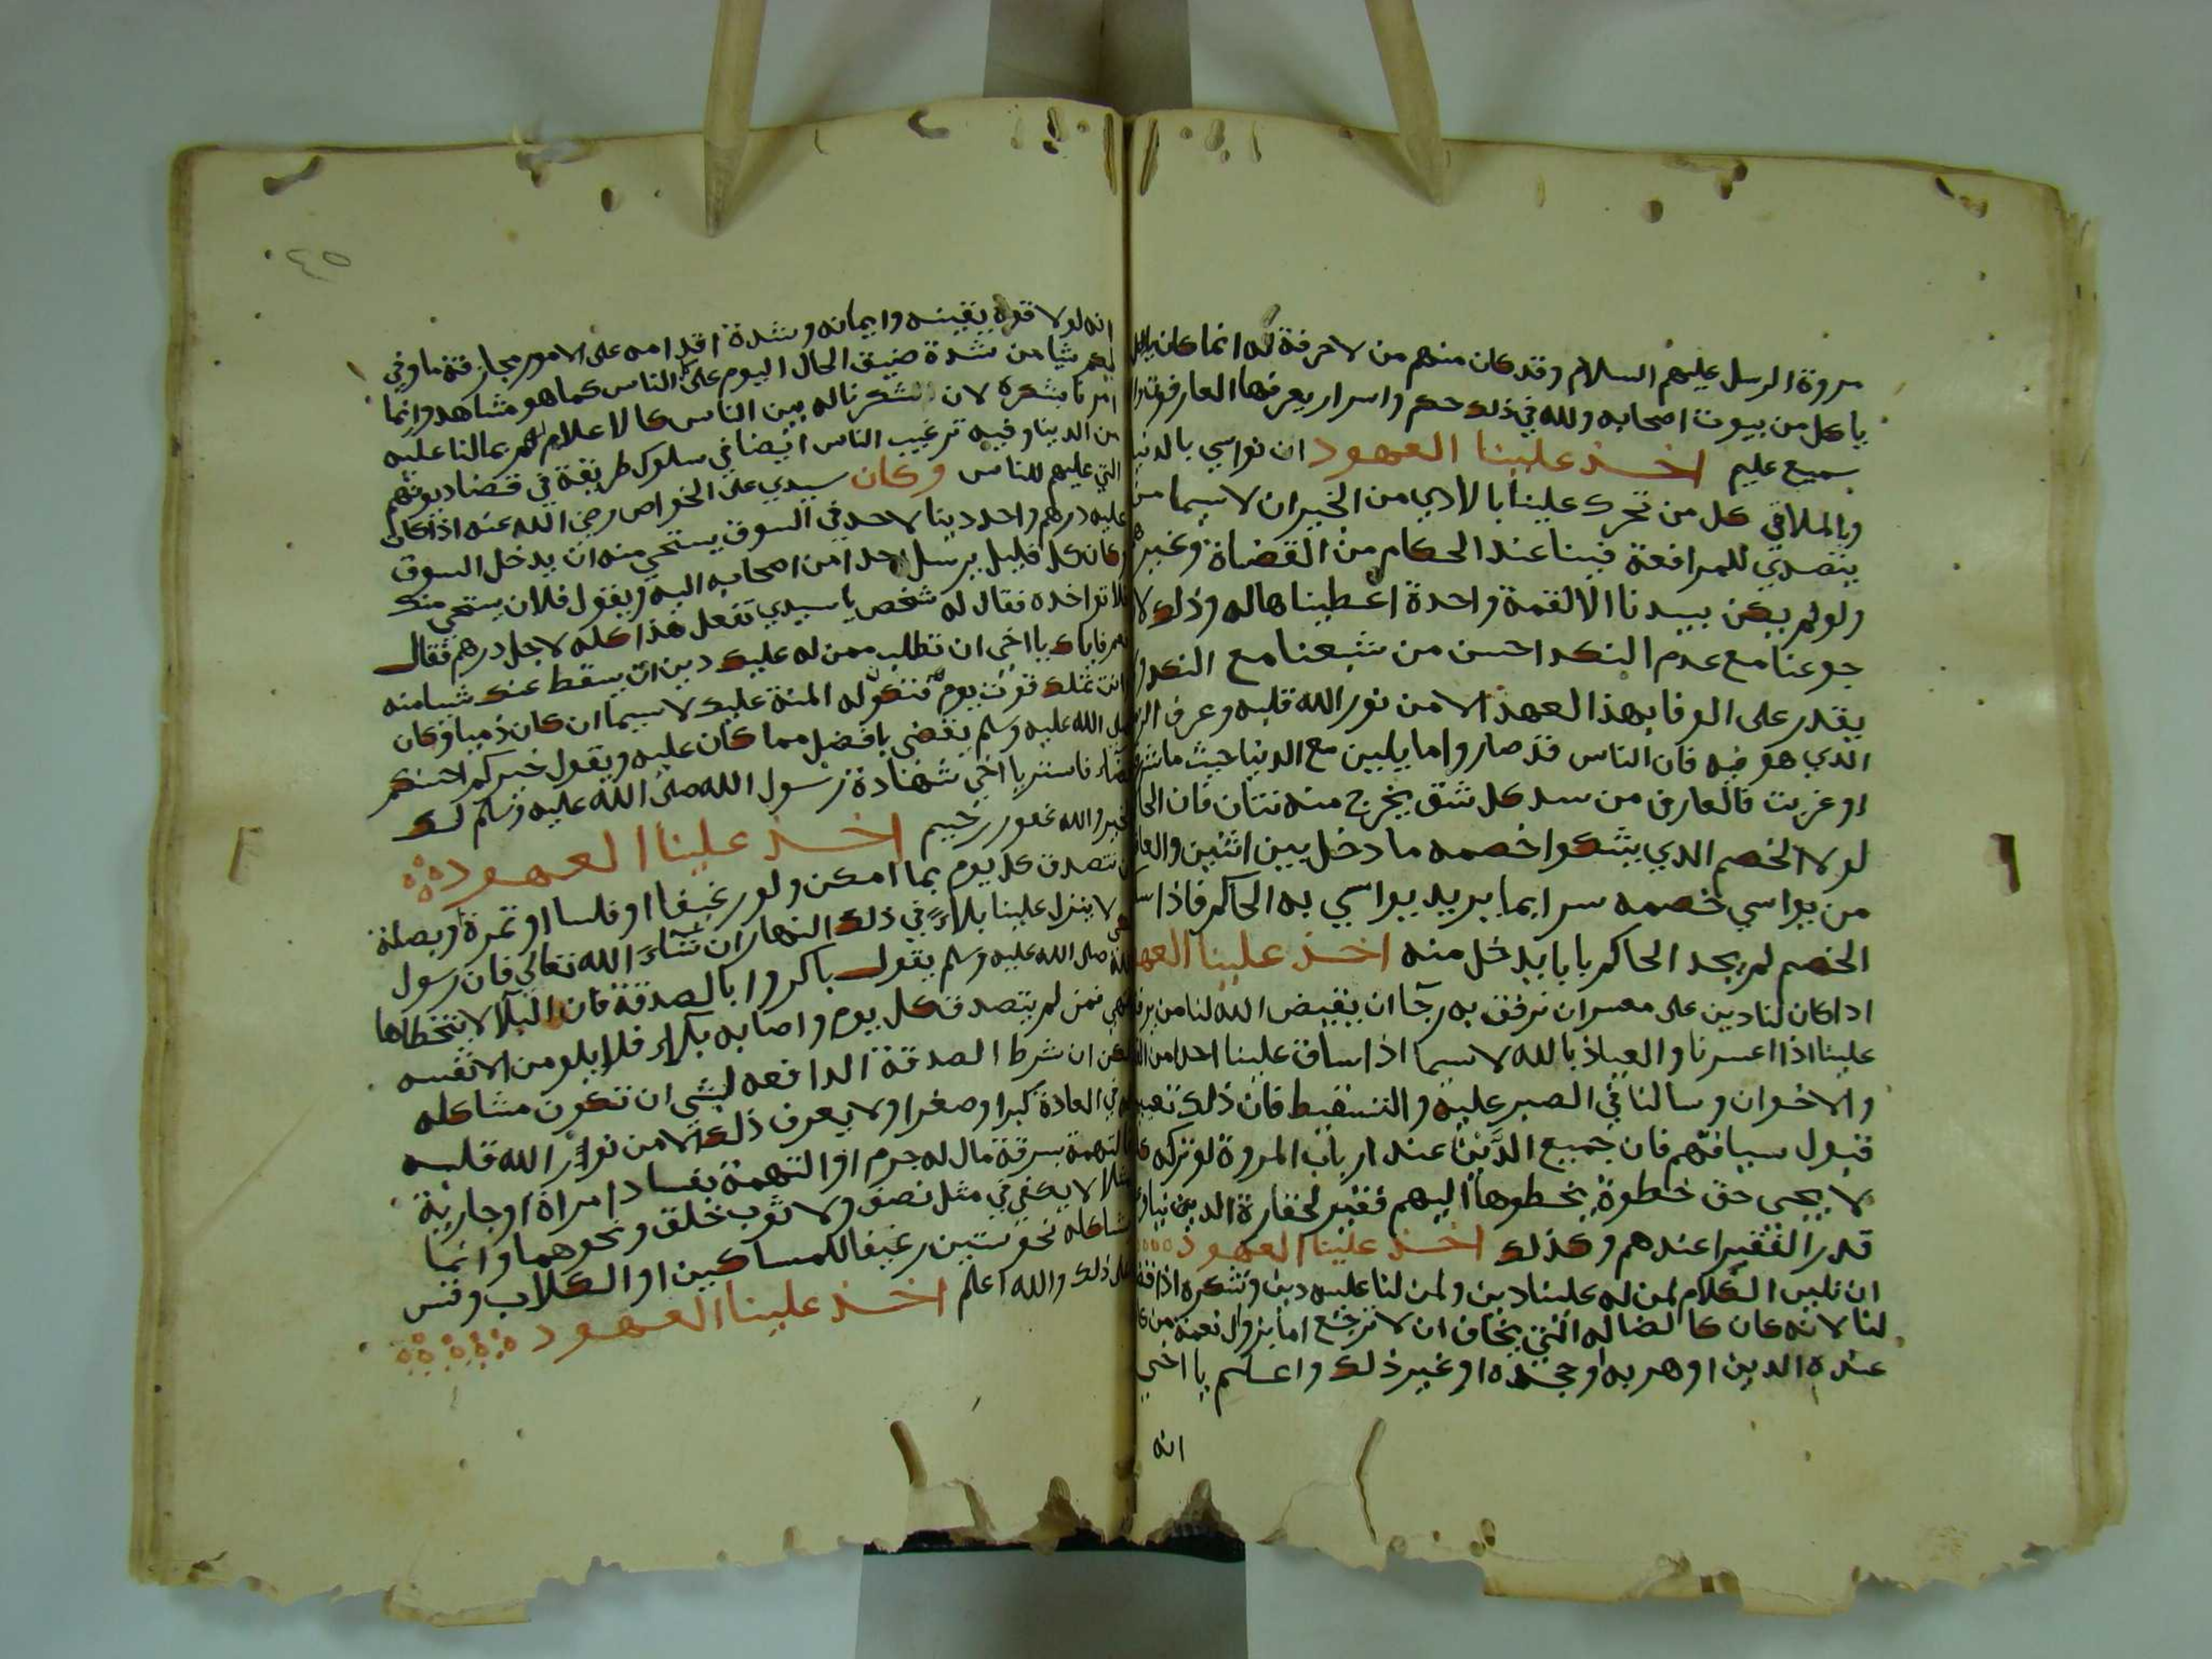 مروة الرسل عليهم السلام وقد كان منهم من لا حرفة له انما كان
ياكل من بيوت اصحابه ولله في ذلك حكم واسرار يعرفها العارفون
سميع عليم اخذ علينا العهود ان نواسي بالدنيا
وبالملاقي كل من تحرك علينا بالاذي من الخيران لا سيما من
يتصدي للمرافعة فينا عند الحكام من القضاة وغيرهم
ولو لم يكن بيدنا الا لقمة واحدة اعطيناها له وذلك لان
جوعنا مع عدم النكد احسن من شبعنا مع النكد ولا
يقدر على الوفا بهذا العهد الا من نور الله قلبه وعرف
الذي هو فيه فان الناس قد صاروا مايلين مع الدنيا حيث ما شرقت
او غربت فالعارف من سد كل شق يخرج منه نتان فان الحاكم
لولا الخصم الذي يشكوا خصمه ما دخل بين اثنين
من يواسي خصمه سرا بما يريد يواسي به الحاكم فاذا
الخصم لم يجد الحاكم بابا يدخل منه اخذ علينا العهود
اذا كان لنا دين على معسر ان نرفق به رجآ ان يقيض الله لنا من يرفق
علينا اذا اعسرنا والعياذ بالله لا سيما اذا ساق علينا احدا من
والاخوان وسالنا في الصبر عليه والتسقيط فان ذلك
قبول سياقهم فان جميع الدين عند ارباب المروة لو تركه
لا يجي حق خطوة يخطوها اليهم فقير لحقارة الدين
قدر الفقيرا عندهم وكذلك اخذ علينا العهود
ان نلين الكلام لمن له علينا دين ولمن لنا عليه دين ونشكره اذا
لنا لانه كان كالضالة التي يخاف ان لا ترجع اما بزوال نعمة من
عنده الدين او هربه او جحده او غير ذلك واعلم يا اخي
انه
٤٥
انه لولا قوة يقينه وايمانه وشدة اقدامه على الامور مجازفة ما وفي
لهم شيا من شدة ضيق الحال اليوم على الناس كما هو مشاهد وانما
امرنا بشكره لان شكرنا له بين الناس كالاعلام لهم بمالنا عليه
من الدين وفيه ترغيب الناس ايضا في سلوك طريقة في قضا ديونهم
التي عليهم للناس وكان سيدي على الخواص رضي الله عنه اذا كان
عليه درهم واحد دينا لاحد في السوق يستحي منه ان يدخل السوق
وكان كل قليل يرسل احدا من اصحابه اليه ويقول فلان يستحي منك
فلا تواخذه فقال له شخص يا سيدي تفعل هذا كله لاجل درهم فقال
نعم فاياك يا اخي ان تطلب ممن له عليك دين ان يسقط عنك شيا منه
وانت تملك قوت يوم فتكون له المنة عليك لا سيما ان كان ذميا وكان
صلى الله عليه وسلم يقضي بافضل مما كان عليه ويقول خيركم احسنكم
قضاء فاستر يا اخي شهادة رسول الله صلى الله عليه وسلم لك
بخير والله غفور رحيم اخذ علينا العهود
ان نتصدق كل يوم بما امكن ولو رغيفا او فلسا او تمرة او بصلة
لا ينزل علينا بلاء في ذلك النهار ان شاء الله تعالى فان رسول
الله صلى الله عليه وسلم يقول باكروا بالصدقة فان البلا لا يتخطاها
فمن لم يتصدق كل يوم واصابه بلاء فلا يلومن الا نفسه
ان شرط الصدقة الدافعه لشي ان تكون مشاكله
له في العادة كبرا وصغرا ولا يعرف ذلك الا من نور الله قلبه
فالتهمة بسرقة مال له جرم او التهمة بفساد امراة او جارية
مثلا لا يكفي في مثل نصف ولا ثوب خلق ونحوهما وانما
شاكله نحو ستين رغيفا للمساكين او الكلاب وقس
على ذلك والله اعلم اخذ علينا العهود